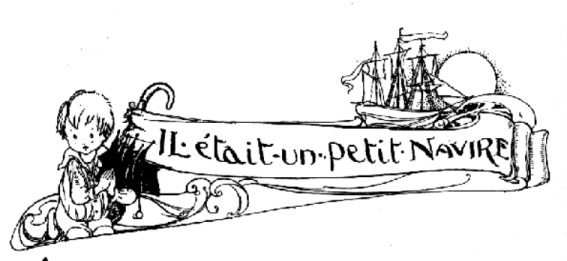 IL·était·un·petit·NAVIRE